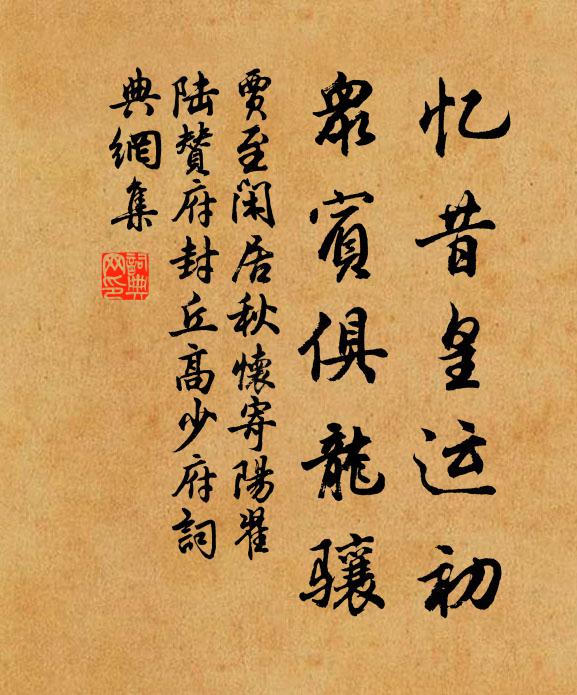 忆昔皇运初
众宾俱龙骧
贾至闲居秋怀寄阳翟
陆赞府封丘高少府词
典网集
词典网印